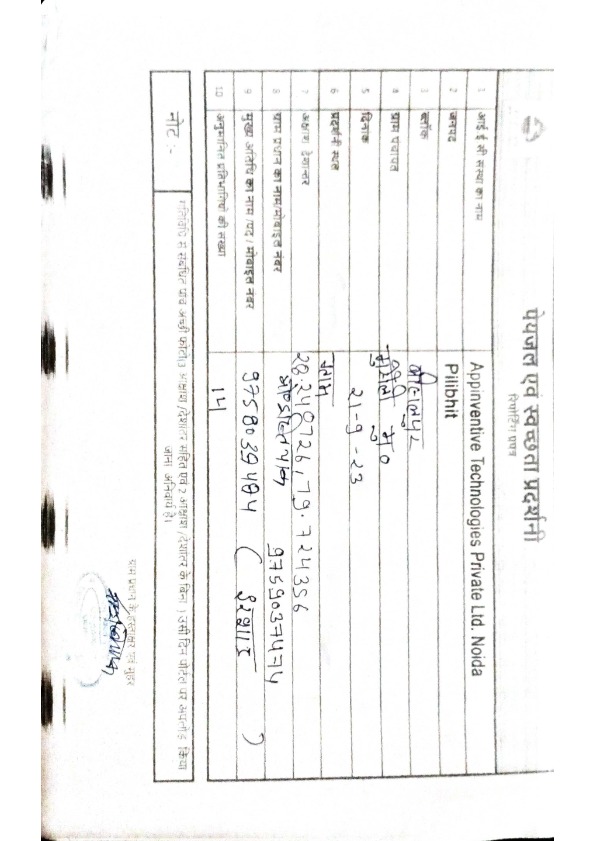 पेयजल एवं स्वच्छता प्रदर्शनी
रिपोर्टिंग प्रपत्र
1 आई ई सी संस्था का नाम Appinventive Technologies Private Ltd. Noida
2 जनपद Pilibhit
3 ब्लॉक बीसलपुर
4 ग्राम पंचायत
5 दिनांक 21-9-23
6 प्रदर्शनी स्थल
7 अक्षांश देशान्तर 28.240726, 79.724356
8 ग्राम प्रधान का नाम/मोबाइल नंबर 9759037474
9 मुख्य अतिथि का नाम /पद / मोबाइल नंबर 9758039484 ( )
10 अनुमानित प्रतिभागियों की संख्या 141
नोट :- गतिविधि से संबंधित पांच अच्छी फोटो(3 अक्षांश /देशान्तर सहित एवं 2 अक्षांश /देशान्तर के बिना ) उसी दिन पोर्टल पर अपलोड किया
जाना अनिवार्य है।
ग्राम प्रधान के हस्ताक्षर एवं मुहर